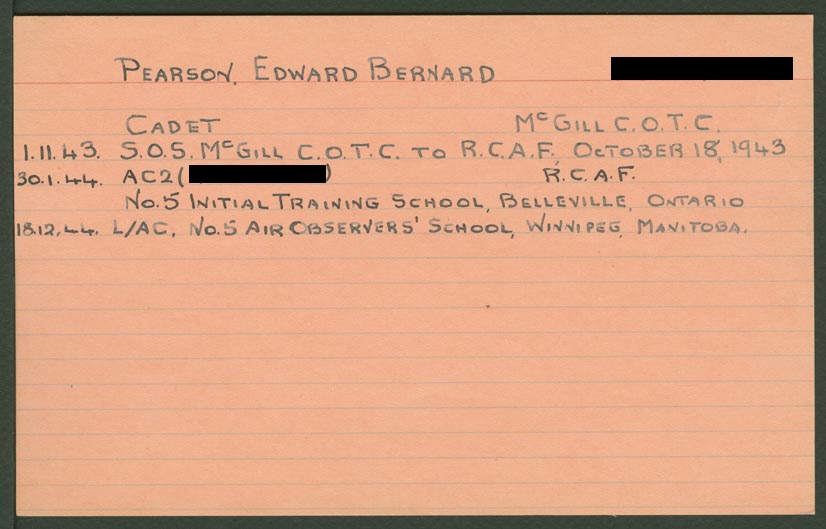 PEARSON, EDWARD BERNARD
CADET McGILL C.O.T.C.
1.11.43. S.O.S. McGILL C.O.T.C. TO R.C.A.F. OCTOBER 18, 1943
30.1.44. AC2 ( ) R.C.A.F.
No.5 INITIAL TRAINING SCHOOL, BELLEVILLE, ONTARIO
18.12.44. L/AC, No.5 AIR OBSERVERS' SCHOOL, WINNIPEG, MANITOBA.